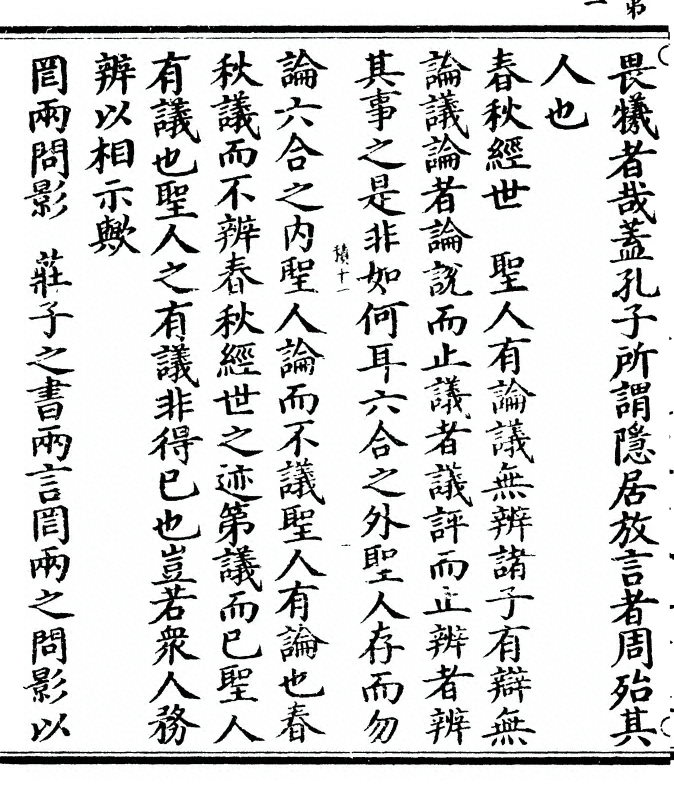 畏犧者哉蓋孔子所謂隱居放言者周殆其
人也
春秋經世　聖人有論議無辨諸子有辯無
論議論者論說而止議者議評而止辨者辨
其事之是非如何耳六合之外聖人存而勿
論六合之内聖人論而不議聖人有論也春
秋議而不辨春秋經世之迹第議而已聖人
有議也聖人之有議非得已也豈若衆人務
辨以相示歟
罔兩問影　莊子之書兩言罔兩之問影以